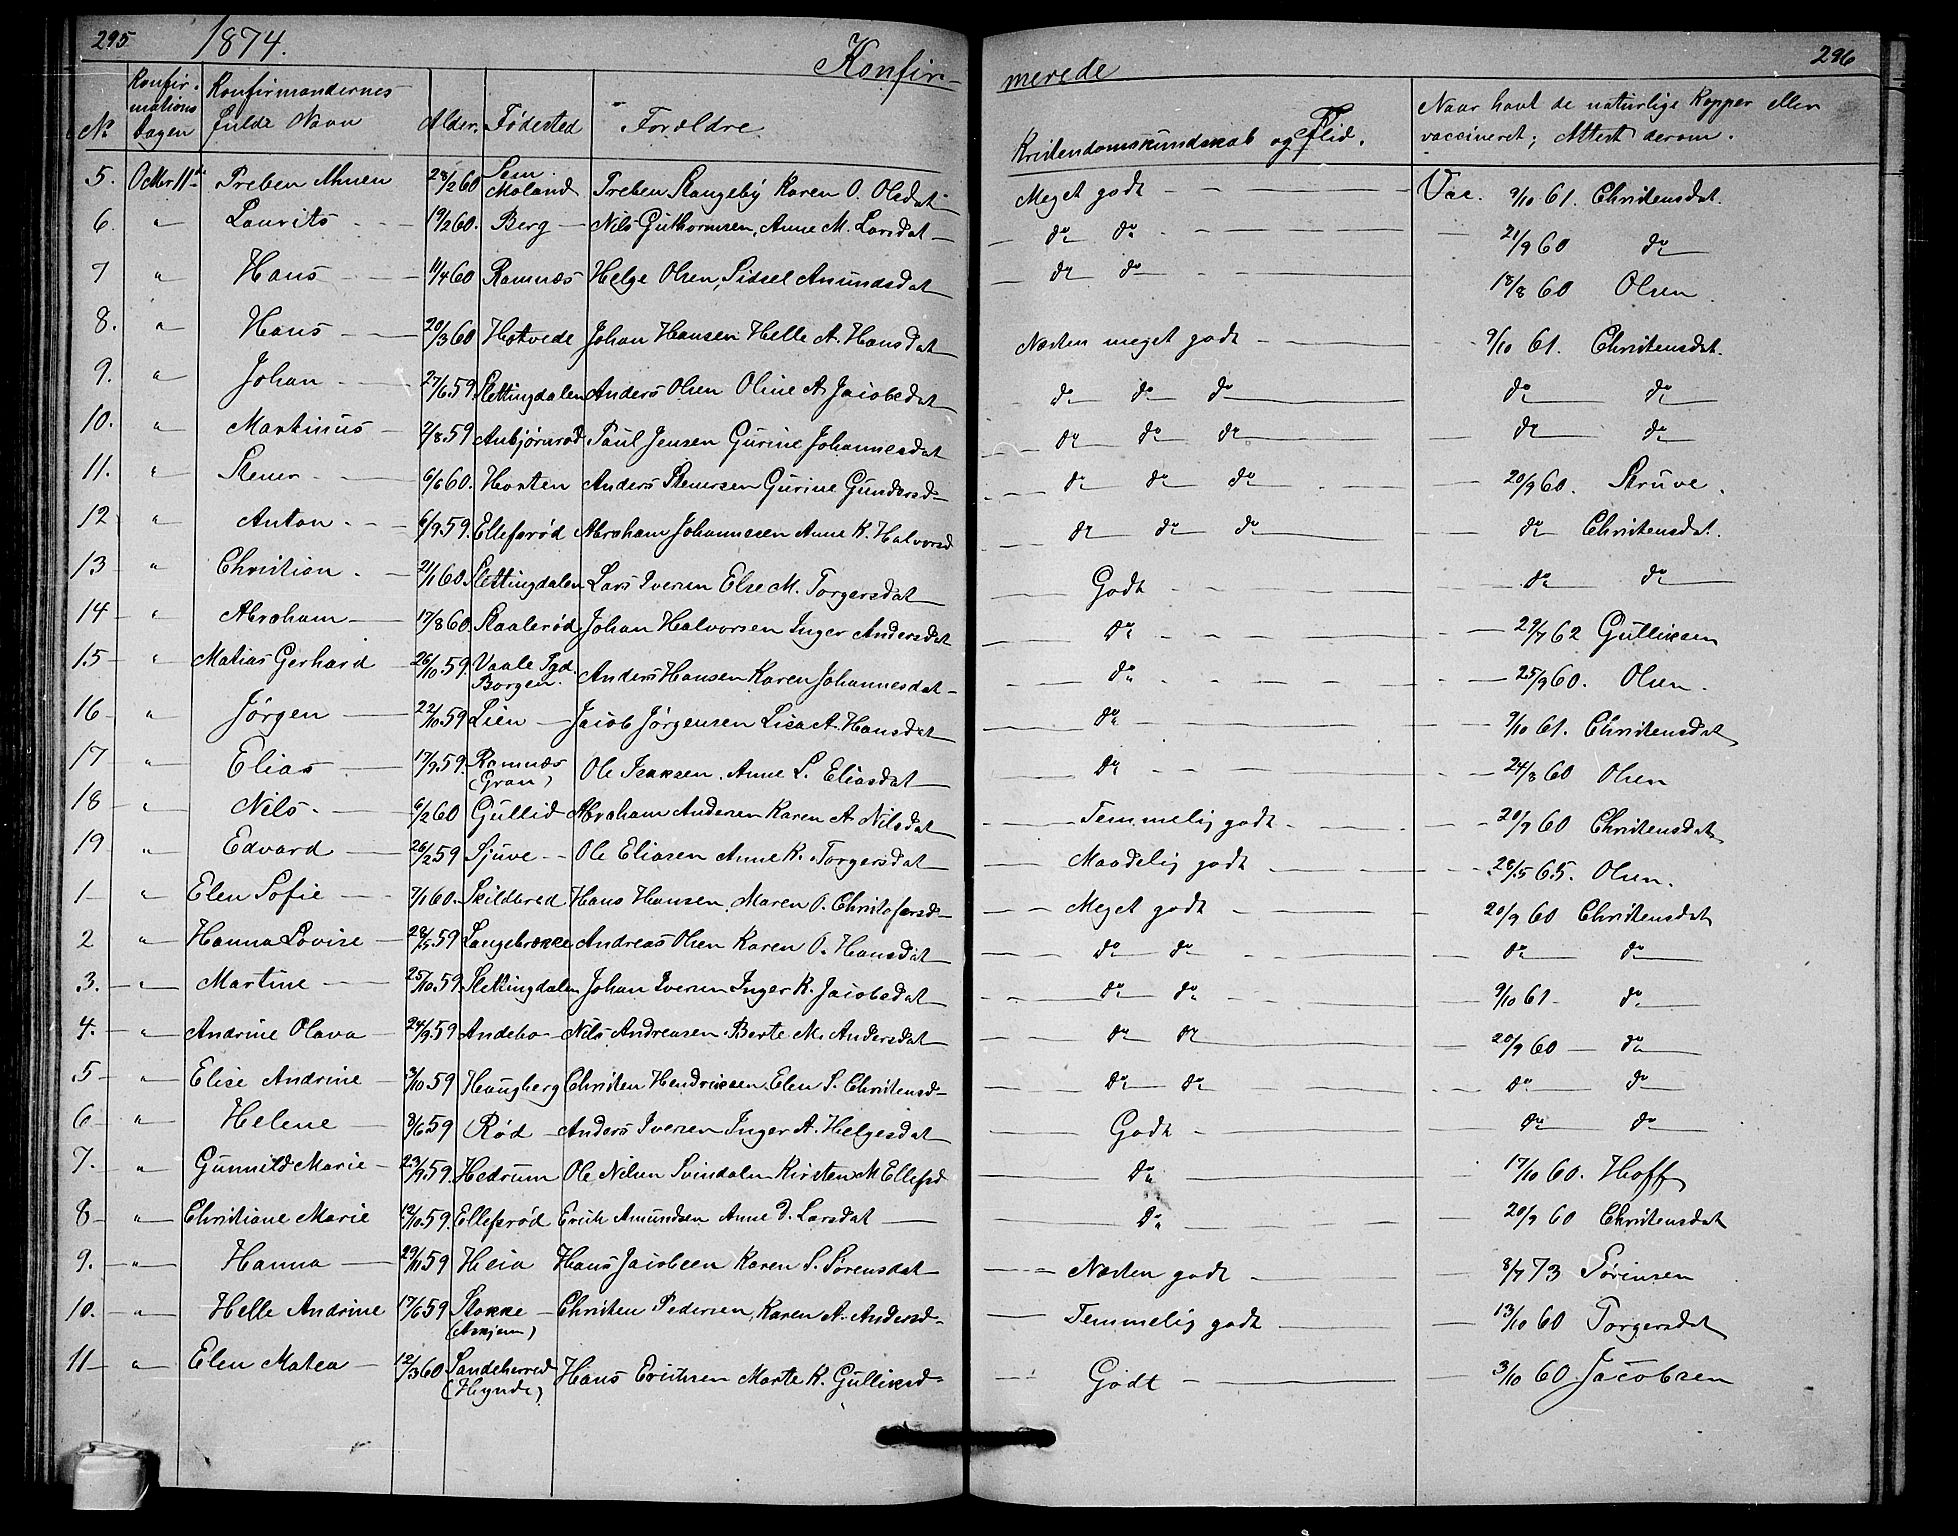 295 1874. Konfir- merede 296
No Konfirmations Dagen Konfirmandernes fulde Navn Alder. Fødested Forældre. Kristendomskundskab og Flid. Naar havt de naturlige Kopper eller vaccineret; Attest derom.
5. Octbr 11te Preben 28/2 60 Sem. Moland Preben Karen O. Olsdat Meget godt Vac. 9/10 61. Christensdat.
6. " Laurits 19/2 60. Berg Nils Guthormsen, Anne M. Larsdat do do 21/9 60 do
7 " Hans 11/4 60 Ramnæs Helge Olsen, Sidsel Amundsdat do do 18/8 60 Olsen.
8. " Hans 20/3 60 Hotvede Johan Hansen Helle A. Hansdat Næsten meget godt 9/10 61. Christensdat.
9. " Johan 27/6 59. Slettingdalen Anders Olsen Oline A. Jacobsdat do do do do do
10. " Martinus 2/8 59 Anbjørnrød Paul Jensen Gurine Johannesdat do do do do do
11. " Stener 6/6 60. Horten Anders Stenersen Gurine Gundersd do do do 20/9 60. Struve.
12 " Anton 6/9 59. Ellefsrød Abraham Johannesen Anne K. Halvorsd do do do do Christensdat.
13 " Christian 2/1 60 Slettingdalen Lars Iversen Else M. Torgersdat Godt do do
14 " Abraham 17/8 60. Raalerød Johan Halvorsen Inger Andersdat do 29/7 62 Gulliksen
15 " Matias Gerhard 26/10 59. Vaale Pgd. Borgen. Anders Hansen Karen Johannesdat do 25/9 60. Olsen.
16 " Jørgen 22/10 59 Lien Jacob Jørgensen Lisa A. Hansdat do 9/10 61. Christensdat
17 " Elias 17/9 59. Ramnæs (Gran) Ole Isaksen. Anne L. Eliasdat do 24/8 60 Olsen
18 " Nils 6/2 60 Gullid Abraham Andersen Karen A. Nilsdat Temmelig godt 20/9 60 Christensdat
19 " Edvard 26/2 59 Sjuve Ole Eliasen Anne K. Torgersdat Maadelig godt 28/5 65. Olsen.
1 " Elen Sofie 7/1 60. Skildbred Hans Hansen, Maren O. Christofersd Meget godt 20/9 60 Christensdat
2 " Hanna Lovise 28/5 59 Langebrække Andreas Olsen Karen O. Hansdat do do do do
3. " Martine 25/10 59. Slettingdalen Johan Iversen Inger K. Jacobsdat do do 9/10 61 do
4. " Andrine Olava 24/9 59 Andebo Nils Andreasen Berte M. Andersdat do do 20/9 60 do
5 " Elise Andrine 3/10 59 Haugberg Christen Hendriksen Elen S. Christensd do do do do
6 " Helene 3/6 59 Rød Anders Iversen Inger A. Helgesdat Godt do do
7. " Gunnild Marie 23/9 59. Hedrum Ole Nilsen Svindalen Kirsten M Ellefsd do 17/10 60. Hoff
8 " Christiane Marie 12/10 59. Ellefsrød Erich Amundsen Anne D. Larsdat do 20/9 60 Christensdat
9. " Hanna 29/11 59 Heia Hans Jacobsen Karen S. Sørensdat Næsten godt 8/7 73 Sørinsen
10. " Helle Andrine 17/6 59 Stokke (Askjem) Christen Pedersen, Karen A. Andersd Temmelig godt 13/10 60 Torgersdat
11 " Elen Matea 12/3 60 Sandeherred (Hynde) Hans Erichsen Marte K. Gulliksd Godt 3/10 60. Jacobsen